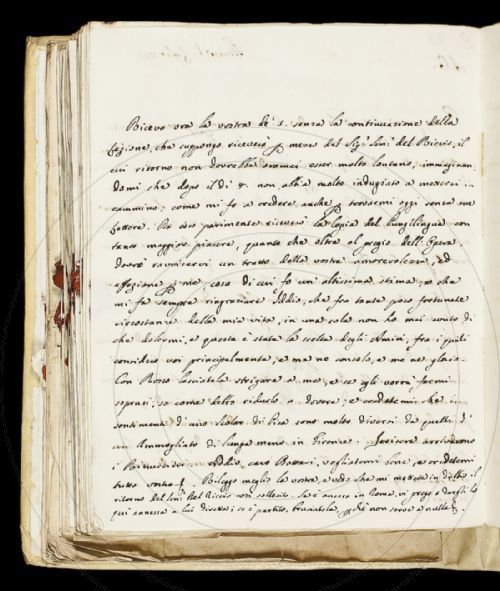 Ricevo ora la vostra de' 5. senza la continuazione della
lezione, che suppongo riceverò p mezzo del Sigr Seni del Riccio, il
cui ritorno non dovrebbe oramai esser molto lontano, immaginan-
domi che dopo il di 4. non abbia molto indugiato a mettersi in
cammino, come mi fo a credere anche p trovarmi oggi senza sue
Lettere. Per esso parimente riceverò la copia del Pungilingua con
tanto maggior piacere, quanto che oltre al pregio dell' Opera,
dovrò ravvisarvi un tratto della vostra amorevolezza, ed
affezione p me, cosa di cui fo un' altissima stima, e che
mi fa sempre ringraziare Iddio, che fra tante poco fortunate
circostanze della mia vita, in una sola non ho mai avuto di
che dolermi, e questa è stata la scelta degli Amici, fra i quali
considero voi principalmente, e me ne consolo, e me ne glorio.
Con Rosso lasciatela strigare a me, e se egli vorrà farmi
soprusi, so come debbo ridurlo a dovere; e credetemi che i
sentimenti d' uno Scolar di Pisa sono molto diversi da quelli d'
un Ammogliato di lunga mano in Firenze. arrivarono
i Addio, caro Bottari, vogliatemi bene, e credetemi
tutto vostro Rileggo meglio la vostra, e vedo che mi mettete in dubbio il
ritorno del Seni del Riccio così sollecito. Se è ancora in Roma, vi prego a dargli la
qui annessa a lui diretta; se è partito, bruciatela, p chè non serve a nulla.